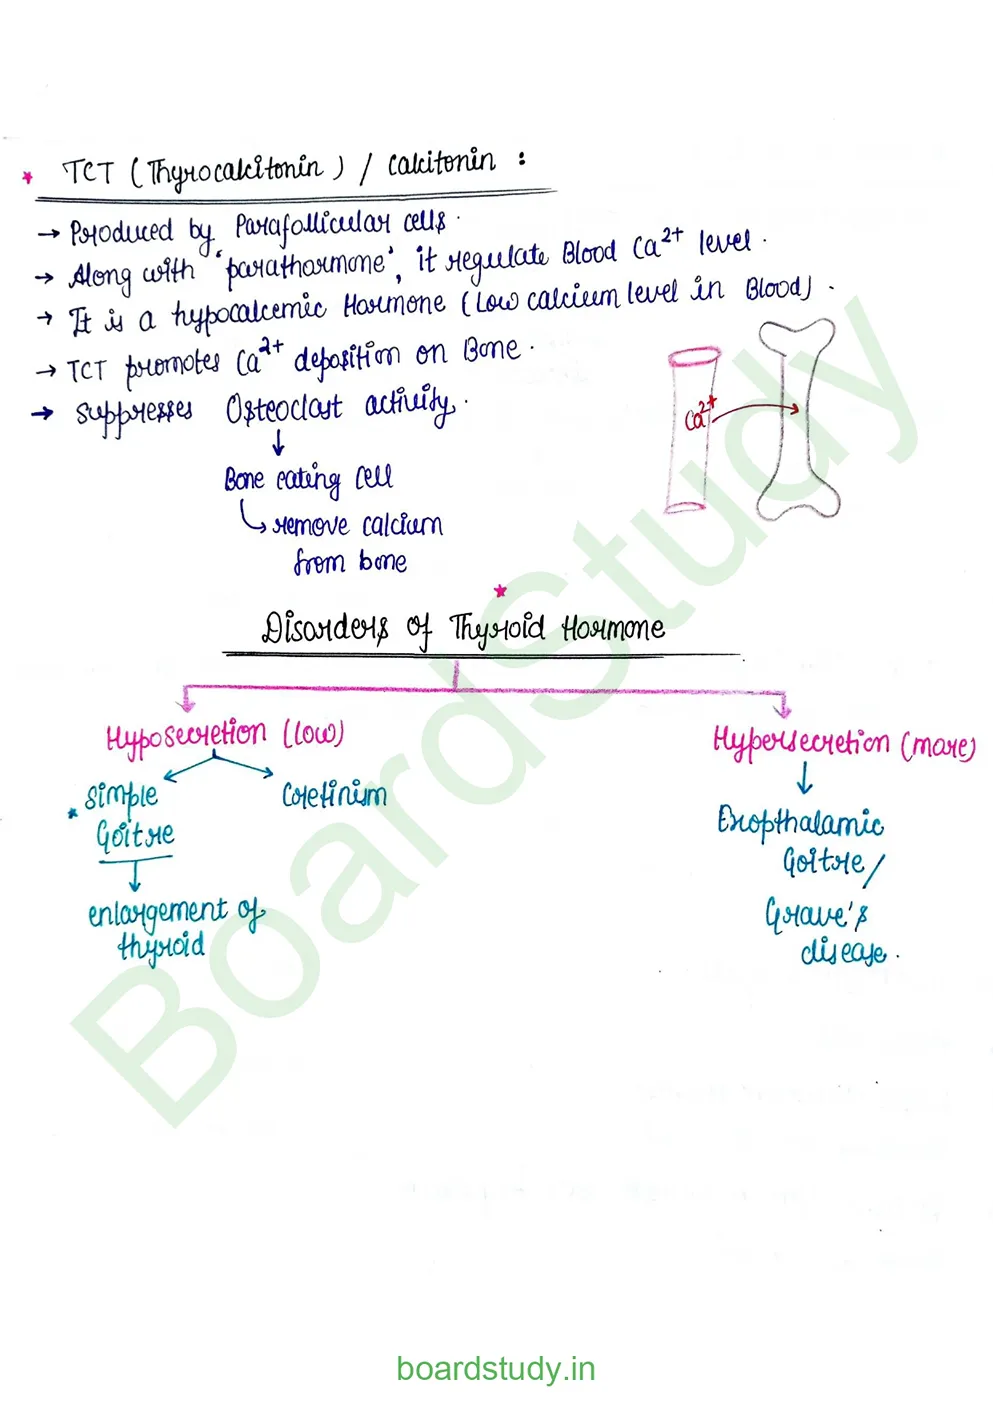 * TCT (Thyrocalcitonin) / Calcitonin :
→ Produced by Parafollicular cells.
→ Along with 'parathormone', it regulate Blood Ca2+ level.
→ It is a hypocalcemic Hormone (Low calcium level in Blood).
→ TCT promotes Ca2+ deposition on Bone.
→ suppresses Osteoclast activity.
Ca2+
↓
Bone eating Cell
↳ remove calcium
from bone
*
Disorders of Thyroid Hormone
Hyposecretion (low)
Hypersecretion (more)
* Simple
Goitre
Cretinism
↓
enlargement of
thyroid
↓
Exopthalamic
Goitre /
Grave's
disease.
BoardStudy
boardstudy.in